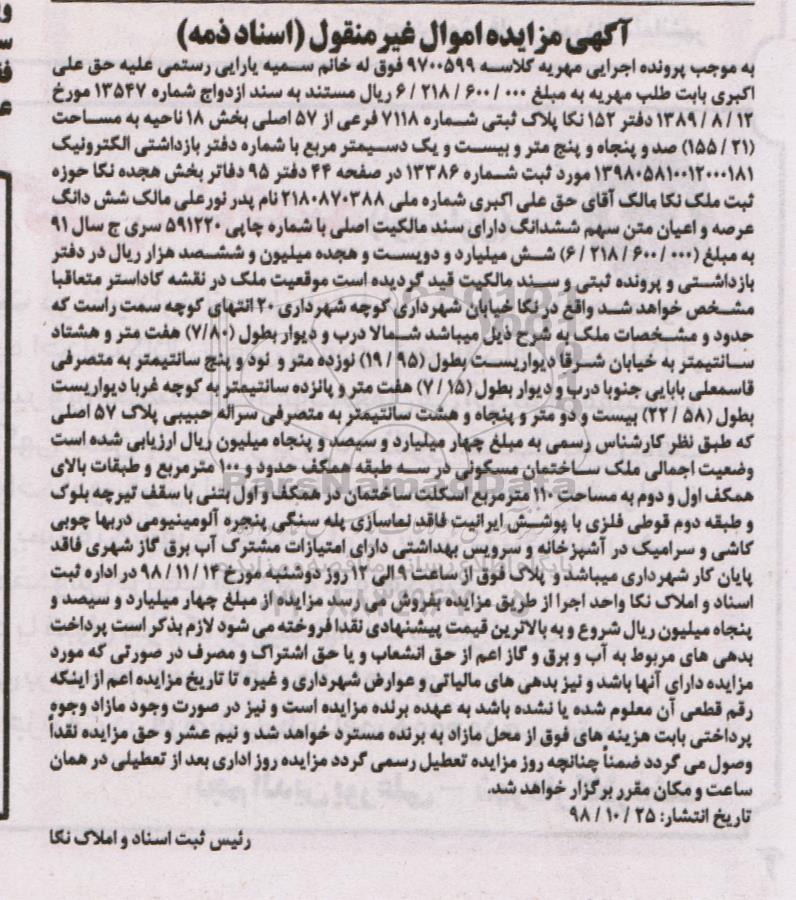 آگهی مزایده اموال غیر منقول (اسناد ذمه)
به موجب پرونده اجرایی مهریه کلاسه ۹۷۰۰۵۹۹ فوق له خانم سمیه یارایی رستمی علیه حق علی
اکبری بابت طلب مهریه به مبلغ ۰۰۰ / ۶۰۰ / ۲۱۸ / ۶ ریال مستند به سند ازدواج شماره ۱۳۵۴۷ مورخ
۱۲ / ۸ / ۱۳۸۹ دفتر ۱۵۲ نکا پلاک ثبتی شماره ۷۱۱۸ فرعی از ۵۷ اصلی بخش ۱۸ ناحیه به مساحت
(۲۱ / ۱۵۵) صد و پنجاه و پنج متر و بیست و یک دسیمتر مربع با شماره دفتر بازداشتی الکترونیک
۱۳۹۸۰۵۸۱۰۰۱۲۰۰۰۱۸۱ مورد ثبت شماره ۱۳۳۸۶ در صفحه ۴۴ دفتر ۹۵ دفاتر بخش هجده نکا حوزه
ثبت ملک نکا مالک آقای حق علی اکبری شماره ملی ۲۱۸۰۸۷۰۳۸۸ نام پدر نورعلی مالک شش دانگ
عرصه و اعیان متن سهم ششدانگ دارای سند مالکیت اصلی با شماره چاپی ۵۹۱۲۲۰ سری ج سال ۹۱
به مبلغ (۰۰۰ / ۶۰۰ / ۲۱۸ / ۶) شش میلیارد و دویست و هجده میلیون و ششصد هزار ریال در دفتر
بازداشتی و پرونده ثبتی و سند مالکیت قید گردیده است موقعیت ملک در نقشه کاداستر متعاقبا
مشخص خواهد شد واقع در نکا خیابان شهرداری کوچه شهرداری ۲۰ انتهای کوچه سمت راست که
حدود و مشخصات ملک به شرح ذیل میباشد شمالا درب و دیوار بطول (۷/۸۰) هفت متر و هشتاد
سانتیمتر به خیابان شرقا دیواریست بطول (۹۵ / ۱۹) نوزده متر و نود و پنج سانتیمتر به متصرفی
قاسمعلی بابایی جنوبا درب و دیوار بطول (۱۵ / ۷) هفت متر و پانزده سانتیمتر به کوچه غربا دیواریست
بطول (۵۸ / ۲۲) بیست و دو متر و پنجاه و هشت سانتیمتر به متصرفی سرائه حبیبی پلاک ۵۷ اصلی
که طبق نظر کارشناس رسمی به مبلغ چهار میلیارد و سیصد و پنجاه میلیون ریال ارزیابی شده است
وضعیت اجمالی ملک ساختمان مسکونی در سه طبقه همکف حدود و ۱۰۰ مترمربع و طبقات بالای
همکف اول و دوم به مساحت ۱۱۰ مترمربع اسکلت ساختمان در همکف و اول بتنی با سقف تیرچه بلوک
و طبقه دوم قوطی فلزی با پوشش ایرانیت فاقد نماسازی پله سنگی پنجره آلومینیومی دربها چوبی
کاشی و سرامیک در آشپزخانه و سرویس بهداشتی دارای امتیازات مشترک آب برق گاز شهری فاقد
پایان کار شهرداری میباشد و پلاک فوق از ساعت ۹ الی ۱۲ روز دوشنبه مورخ ۱۴ / ۱۱ / ۹۸ در اداره ثبت
اسناد و املاک نکا واحد اجرا از طریق مزایده بفروش می رسد مزایده از مبلغ چهار میلیارد و سیصد و
پنجاه میلیون ریال شروع و به بالاترین قیمت پیشنهادی نقدا فروخته می شود لازم بذکر است پرداخت
بدهی های مربوط به آب و برق و گاز اعم از حق انشعاب و یا حق اشتراک و مصرف در صورتی که مورد
مزایده دارای آنها باشد و نیز بدهی های مالیاتی و عوارض شهرداری و غیره تا تاریخ مزایده اعم از اینکه
رقم قطعی آن معلوم شده یا نشده باشد به عهده برنده مزایده است و نیز در صورت وجود مازاد وجوه
پرداختی بابت هزینه های فوق از محل مازاد به برنده مسترد خواهد شد و نیم عشر و حق مزایده نقداً
وصول می گردد ضمناً چنانچه روز مزایده تعطیل رسمی گردد مزایده روز اداری بعد از تعطیلی در همان
ساعت و مکان مقرر برگزار خواهد شد.
تاریخ انتشار: ۲۵ / ۱۰ / ۹۸
رئیس ثبت اسناد و املاک نکا
ParsNamadData